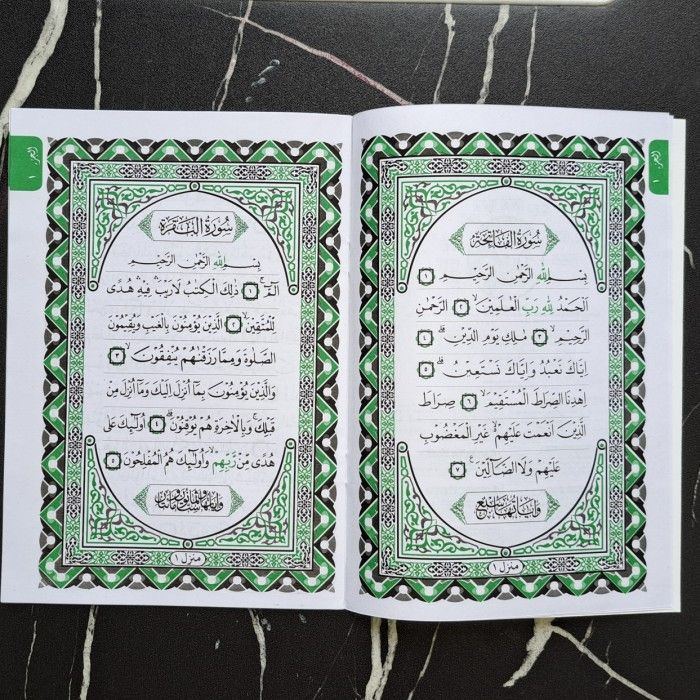 الجزء ١
سُورَةُ الفَاتِحَةِ
بِسْمِ اللهِ الرَّحْمٰنِ الرَّحِيْمِ ١
اَلْحَمْدُ لِلهِ رَبِّ الْعٰلَمِيْنَ ٢ الرَّحْمٰنِ
الرَّحِيْمِ ٣ مٰلِكِ يَوْمِ الدِّيْنِ ٤
اِيَّاكَ نَعْبُدُ وَاِيَّاكَ نَسْتَعِيْنُ ٥
اِهْدِنَا الصِّرَاطَ الْمُسْتَقِيْمَ ٦ صِرَاطَ
الَّذِيْنَ اَنْعَمْتَ عَلَيْهِمْ غَيْرِ الْمَغْضُوْبِ
عَلَيْهِمْ وَلَا الضَّآلِّيْنَ ٧
وَاٰيَاتُهَا سَبْع
منزل ١
الجزء ١
سُورَةُ البَقَرَةِ
بِسْمِ اللهِ الرَّحْمٰنِ الرَّحِيْمِ
الٓمّٓ ١ ذٰلِكَ الْكِتٰبُ لَارَيْبَ فِيْهِ هُدًى
لِّلْمُتَّقِيْنَ ٢ الَّذِيْنَ يُؤْمِنُوْنَ بِالْغَيْبِ وَيُقِيْمُوْنَ
الصَّلٰوةَ وَمِمَّا رَزَقْنٰهُمْ يُنْفِقُوْنَ ٣
وَالَّذِيْنَ يُؤْمِنُوْنَ بِمَآ اُنْزِلَ اِلَيْكَ وَمَآ اُنْزِلَ مِنْ
قَبْلِكَ وَبِالْاٰخِرَةِ هُمْ يُوْقِنُوْنَ ٤ اُولٰٓئِكَ عَلٰى
هُدًى مِّنْ رَّبِّهِمْ وَاُولٰٓئِكَ هُمُ الْمُفْلِحُوْنَ ٥
منزل ١